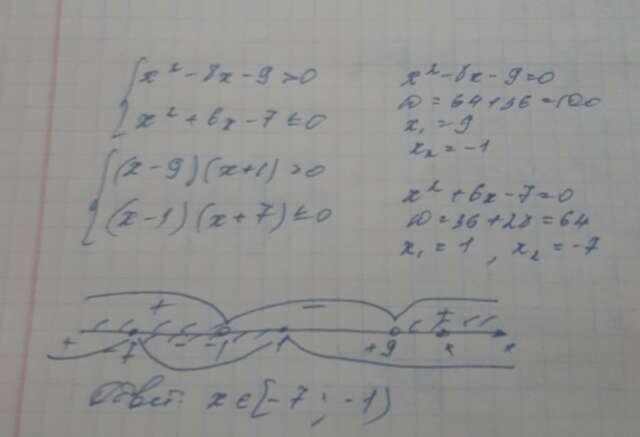 x² - 8x - 9 > 0
x² + 6x - 7 ≤ 0
(x - 9)(x + 1) > 0
(x - 1)(x + 7) ≤ 0
x² - 8x - 9 = 0
D = 64 + 36 = 100
x₁ = 9
x₂ = -1
x² + 6x - 7 = 0
D = 36 + 28 = 64
x₁ = 1, x₂ = -7
+ - +
+ -7 - -1 1 +9 x x
Ответ: x ∈ [-7; -1)